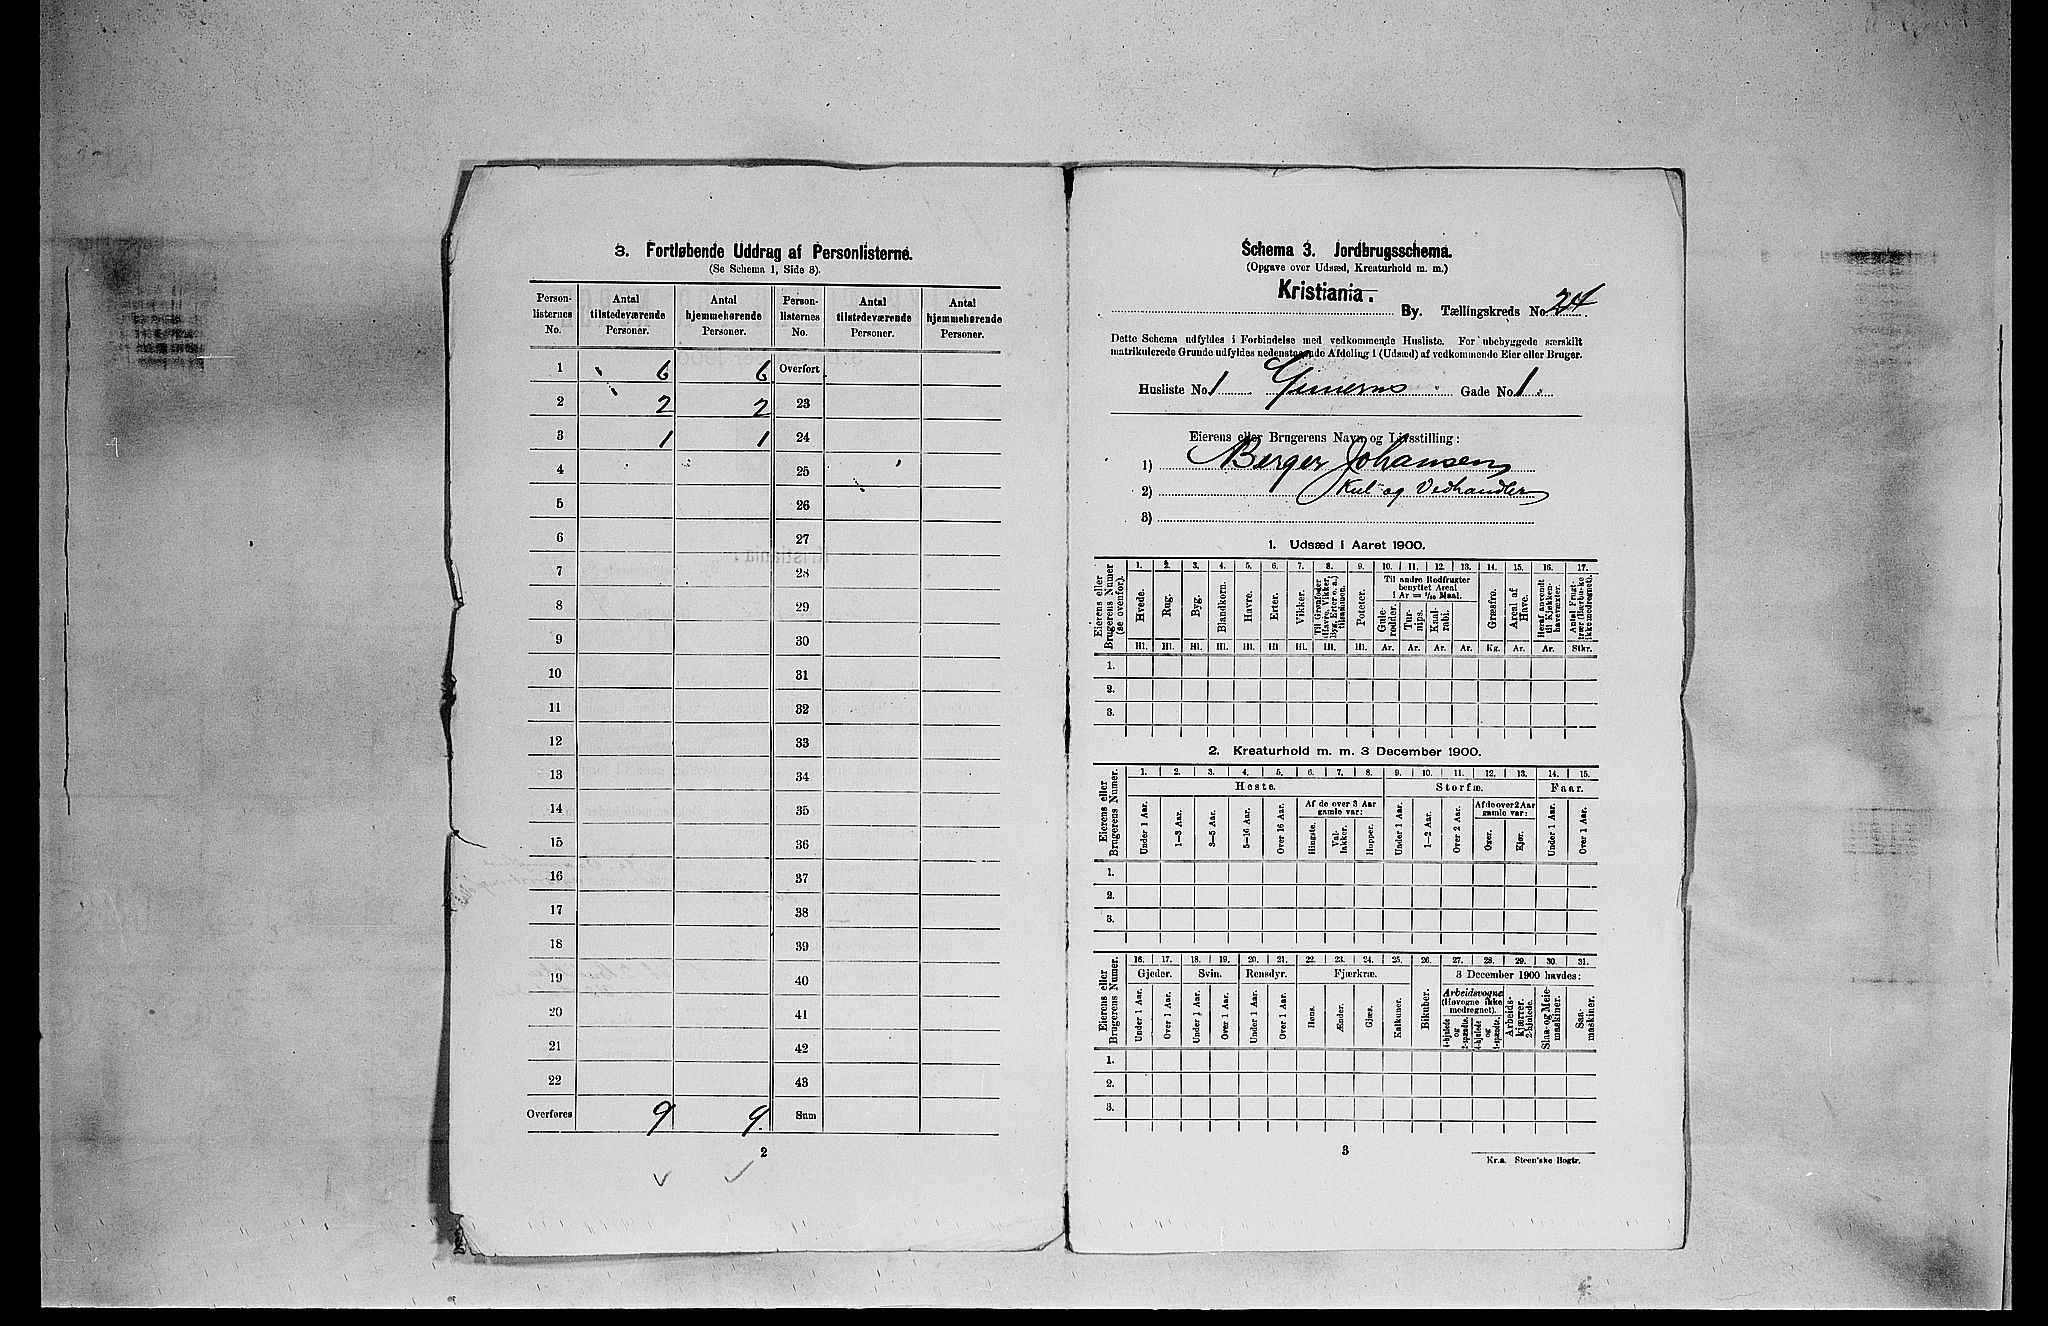 3. Fortløbende Uddrag af Personlisterne.
(Se Schema 1, Side 3).
Person-listernes No. | Antal tilstedeværende Personer. | Antal hjemmehørende Personer. | Person-listernes No. | Antal tilstedeværende Personer. | Antal hjemmehørende Personer.
1 | 6 | 6 | Overført
2 | 2 | 2 | 23
3 | 1 | 1 | 24
4 | 25
5 | 26
6 | 27
7 | 28
8 | 29
9 | 30
10 | 31
11 | 32
12 | 33
13 | 34
14 | 35
15 | 36
16 | 37
17 | 38
18 | 39
19 | 40
20 | 41
21 | 42
22 | 43
Overføres | 9 | 9. | Sum
2
Schema 3. Jordbrugsschema.
(Opgave over Udsæd, Kreaturhold m. m.)
Kristiania.
By. Tællingskreds No. 24
Dette Schema udfyldes i Forbindelse med vedkommende Husliste. For ubebyggede særskilt
matrikulerede Grunde udfyldes nedenstaaende Afdeling 1 (Udsæd) af vedkommende Eier eller Bruger.
Husliste No. 1 Gade No. 1.
Eierens eller Brugerens Navn og Livsstilling:
1) Berger Johansen
2) Kul- og Vedhandler
3)
1. Udsæd i Aaret 1900.
Eierens eller Brugerens Numer (se ovenfor).
1. | 2. | 3. | 4. | 5. | 6. | 7. | 8. | 9. | 10. | 11. | 12. | 13. | 14. | 15. | 16. | 17.
Til andre Rodfrugter benyttet Areal i Ar = 1/10 Maal.
Hvede. | Rug. | Byg. | Blandkorn. | Havre. | Erter. | Vikker. | Til Grønfoder (Havre, Vikker, Byg, Erter o. a.) tilsammen. | Poteter. | Gule-rødder. | Tur-nips. | Kaal-rabi. | Græsfrø. | Areal af Have. | Heraf anvendt til Kjøkken-havevæxter. | Antal Frugt-trær (Bærbuske ikke medregnet).
Hl. | Hl. | Hl. | Hl. | Hl. | Hl | Hl. | Hl. | Hl. | Ar. | Ar. | Ar. | Ar. | Kg. | Ar. | Ar. | Stkr.
1.
2.
3.
2. Kreaturhold m. m. 3 December 1900.
Eierens eller Brugerens Numer.
1. | 2. | 3. | 4. | 5. | 6. | 7. | 8. | 9. | 10. | 11. | 12. | 13. | 14. | 15.
Heste. | Storfæ. | Faar.
Af de over 3 Aar gamle var: | Af de over 2 Aar gamle var:
Under 1 Aar. | 1—3 Aar. | 3—5 Aar. | 5—16 Aar. | Over 16 Aar. | Hingste. | Val-lakker. | Hopper. | Under 1 Aar. | 1—2 Aar. | Over 2 Aar. | Oxer. | Kjør. | Under 1 Aar. | Over 1 Aar.
1.
2.
3.
Eierens eller Brugerens Numer.
16. | 17. | 18. | 19. | 20. | 21. | 22. | 23. | 24. | 25. | 26. | 27. | 28. | 29. | 30. | 31.
Gjeder. | Svin. | Rensdyr. | Fjærkræ. | 3 December 1900 havdes:
Arbeidsvogne (Høvogne ikke medregnet).
Under 1 Aar. | Over 1 Aar. | Under 1 Aar. | Over 1 Aar. | Under 1 Aar. | Over 1 Aar. | Høns. | Ænder. | Gjæs. | Kalkuner. | Bikuber. | 4-hjulede og 2-spændte. | 4-hjulede og 1-spændte. | Arbeids-kjærrer, 2-hjulede. | Slaa- og Meie-maskiner. | Saa-maskiner.
1.
2.
3.
3
Kr.a. Steen'ske Bogtr.